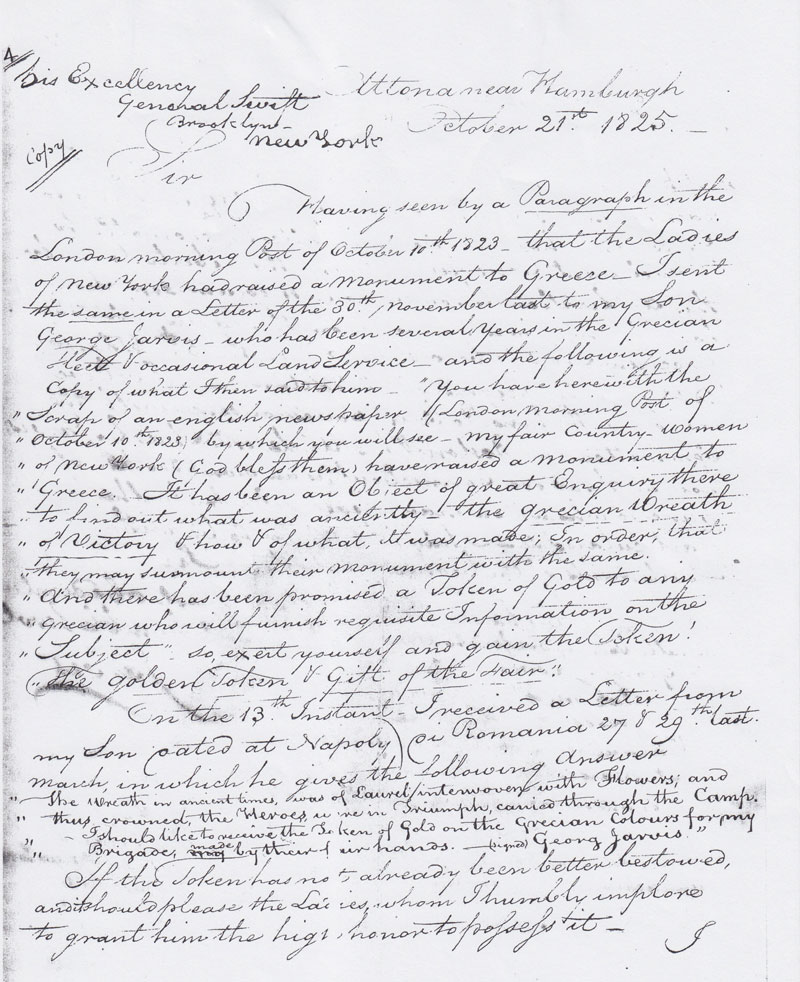 4
His Excellency
General Swift
Brooklyn –
New York
Altona near Hamburgh
October 21st. 1825. –
Copy
Sir
Having seen by a Paragraph in the
London morning Post of October 10th. 1823 – that the Ladies
of New York had raised a Monument to Greece – I sent
the same in a Letter of the 30th, november last to my Son
George Jarvis – who has been several Years in the Grecian
Fleet & occasional Land Service – and the following is a
Copy of what I then said to him – "You have herewith the
" Scrap of an english newspaper (London morning Post of
" October 10th. 1823) by which you will see – my fair Country-women
" of New York (God bless them) have raised a monument to
" Greece. It has been an Object of great Enquiry there
" to find out what was anciently – the grecian Wreath
" of Victory & how & of what, it was made; In order, that
" they may surmount their monument with the same.
" And there has been promised a Token of Gold to any
" Grecian who will furnish requisite Information on the
" Subject" so, exert yourself and gain the Token!
" the golden Token & Gift of the Fair".
On the 13th. Instant – I received a Letter from
my Son (dated at Napoly) di Romania 27 & 29th. last.
march, in which he gives the following Answer
" The Wreath in ancient times, was of Laurel interwoven with Flowers; and
" thus, crowned, the Heroes were in Triumph, carried through the Camp.
" – I should like to receive the Token of Gold on the Grecian Colours for my
" Brigade, made by their fair hands. – (signed) Georg Jarvis."
If the Token has not already been better bestowed,
and it should please the Ladies, whom I humbly implore
to grant him the high honor to possess it –
I